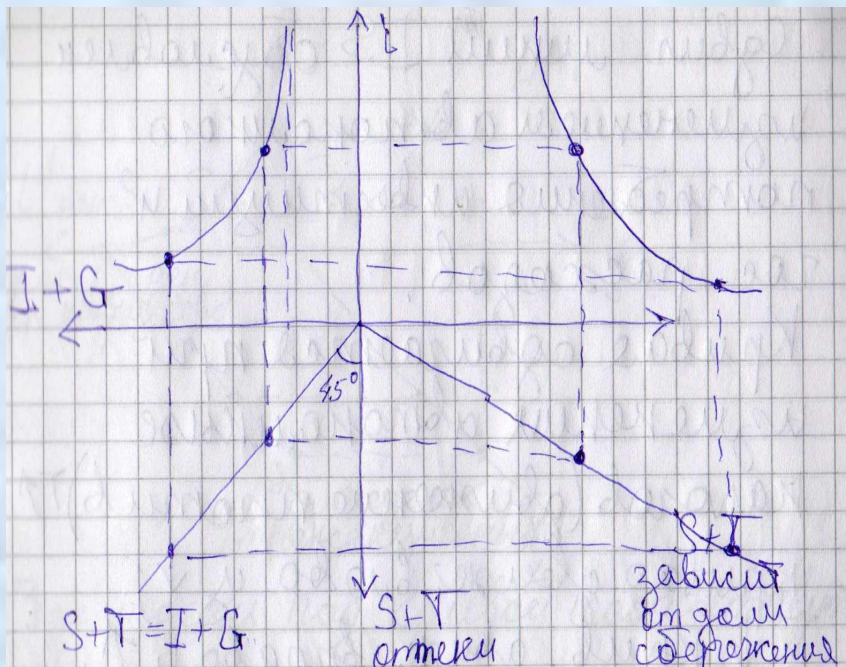 i
I+G
45°
S+T=I+G
S+T
оттеки
S+T
зависит
от доли
сбережения